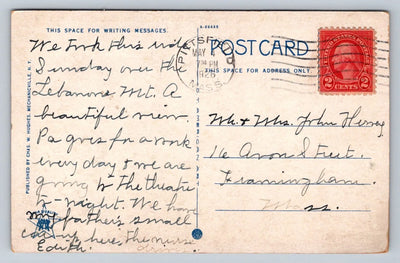 THIS SPACE FOR WRITING MESSAGES.
A-66446
POST CARD
THIS SPACE FOR ADDRESS ONLY.
PITTSFIELD
MAY
PM
MASS.
2 CENTS 2
PUBLISHED BY CHAS. W. HUGHES, MECHANICVILLE, N.Y.
We took this ride
Sunday over the
Lebanon Mt. A
beautiful view.
Pa goes for a walk
every day & we are
going to the theatre
to-night. We have
my father's small
car up here, the nurse
Edith.
Mr. & Mrs. John Hersey
16 Avon Street.
Framingham.
Mass.